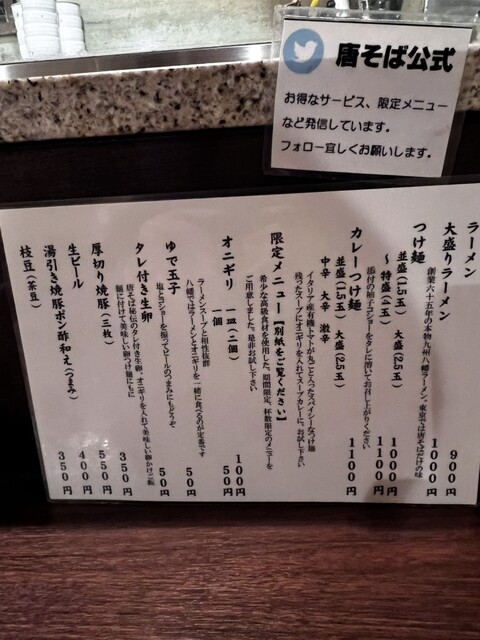 唐そば公式
お得なサービス、限定メニュー
など発信しています。
フォロー宜しくお願いします。
ラーメン 900円
大盛りラーメン 1000円
創業六十五年の本物九州八幡ラーメン。東京では唐そばだけの味
つけ麺
並盛(1.5玉) 大盛(2.5玉) 1000円
〜特盛(4玉) 1100円
添付の柚子コショーをタレに溶いてお召し上がりください
カレーつけ麺
並盛(1.5玉) 大盛(2.5玉) 1100円
中辛 大辛 激辛
イタリア産有機トマトが丸ごと入ったスパイシーなつけ麺
残ったスープにオニギリを入れてスープカレーに。お試し下さい
限定メニュー【別紙をご覧ください】
希少な高級食材を使用した、期間限定、杯数限定のメニューを
ご用意しました。是非お試し下さい
オニギリ 一皿(二個) 100円
一個 50円
ラーメンスープと相性抜群
八幡ではラーメンとオニギリを一緒に食べるのが定番です
ゆで玉子 50円
塩とコショーを振ってビールのつまみにもどうぞ
タレ付き生卵 50円
唐そば秘伝のタレ付き生卵。オニギリを入れて美味しい卵かけご飯
麺に付けて美味しい卵つけ麺にも
厚切り焼豚(三枚) 350円
生ビール 550円
湯引き焼豚ポン酢和え(つまみ) 400円
枝豆(茶豆) 350円